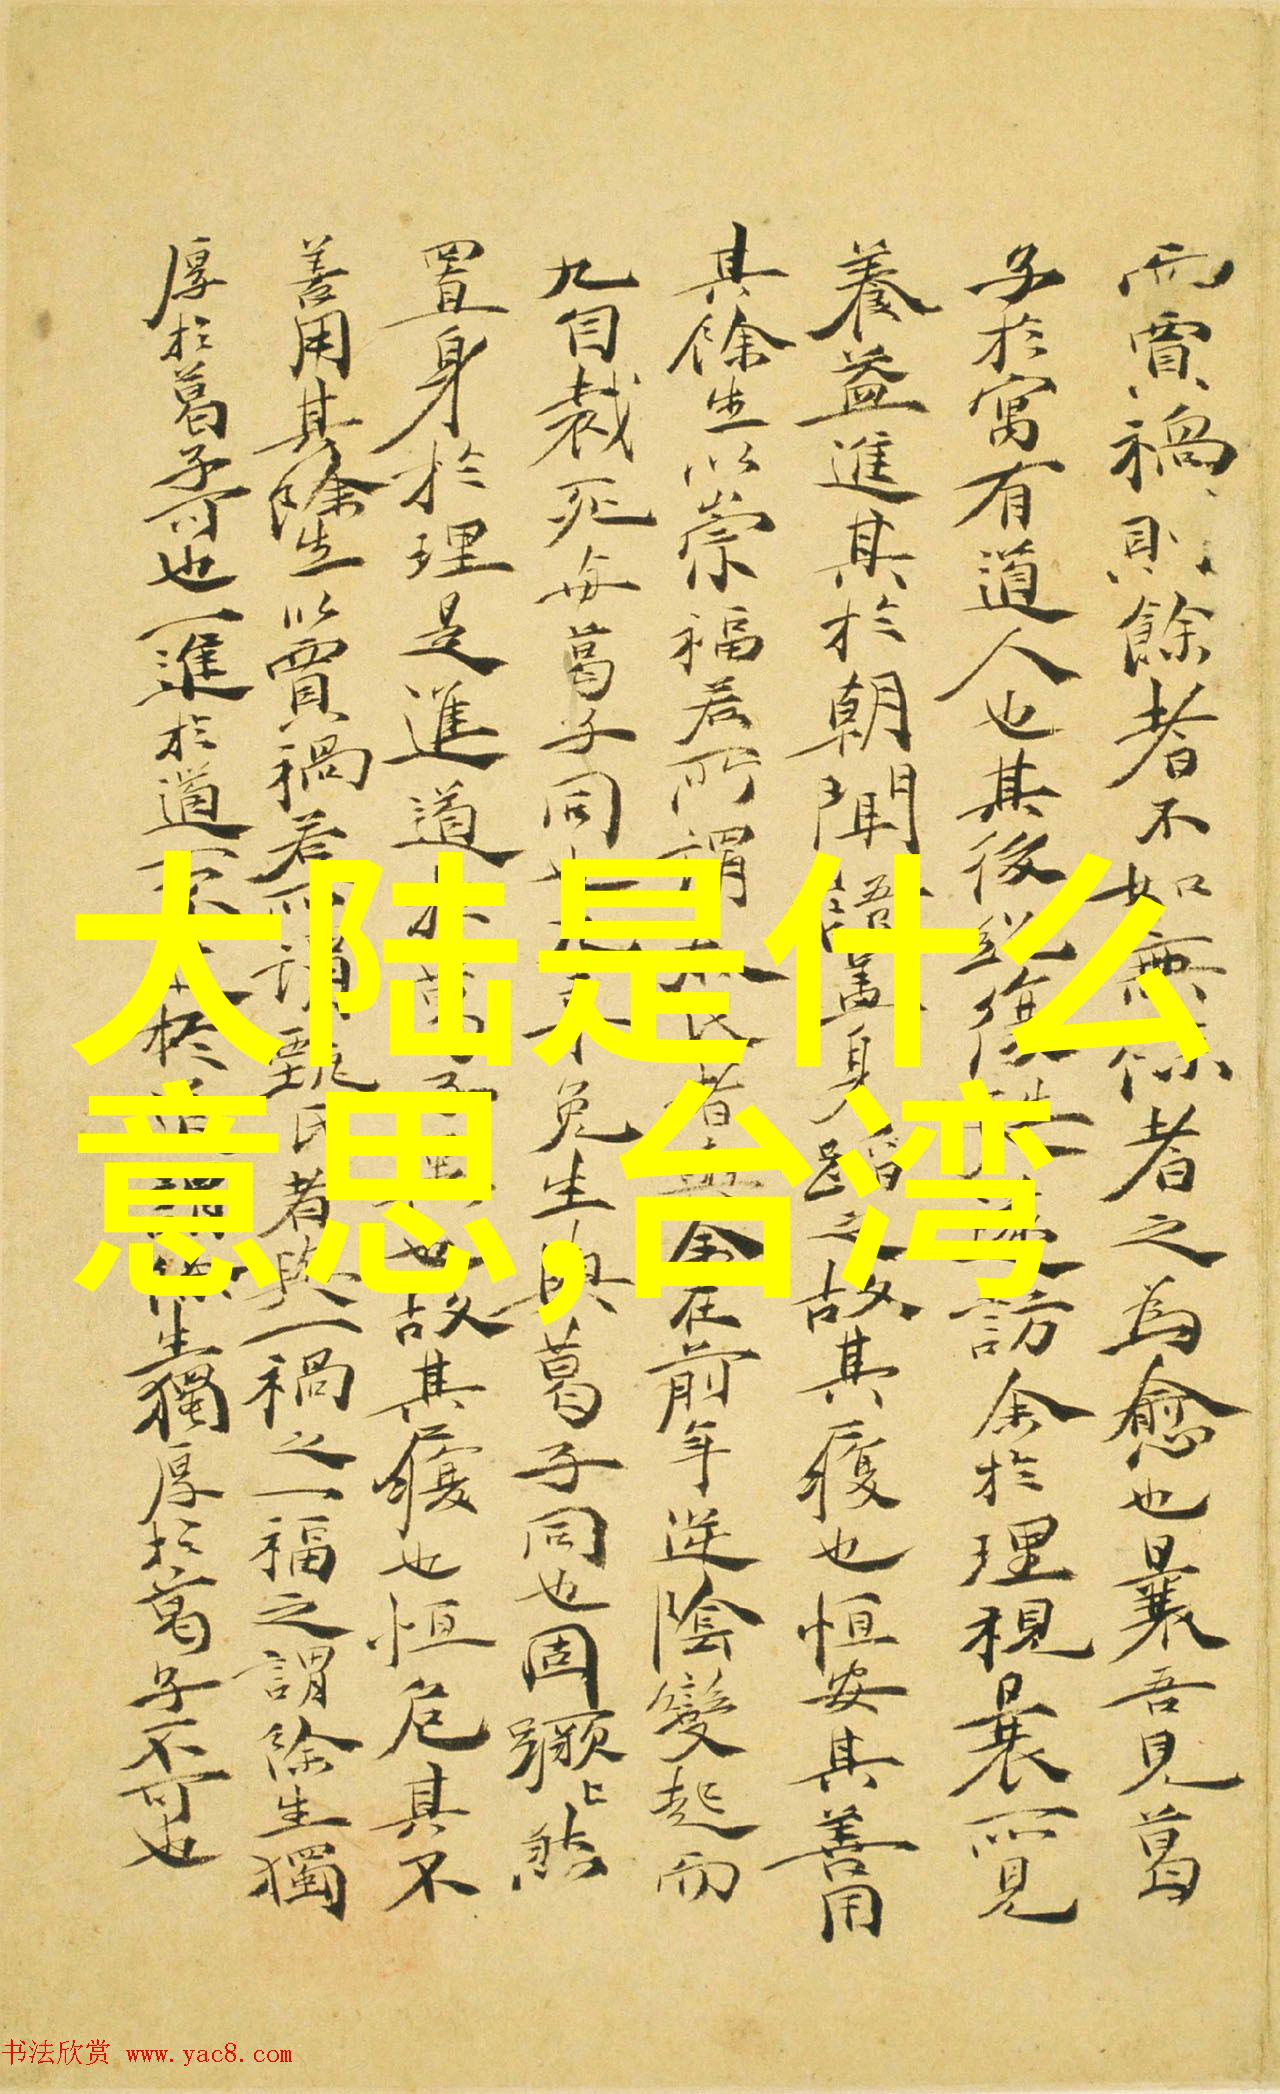 而賈禍則餘者不如無餘者之為愈也曩吾見葛
子於寓有道人也其後訪余於理視曩所見
養益進其於朝聞蹈之故其履也恒安其善用
其餘生以崇福若所謂在前年逆陰變起而
九自裁死毋葛子同也免生與葛子同也固蹶上
置身於理是進道故其履也恒危其不
善用其餘生以賈禍若所謂甄氏者與一禍之一福之謂餘生獨
厚於葛子可也一進於道一生獨厚於葛子不可也
大陆是什么
意思,台湾
书法欣赏 www.yac8.com